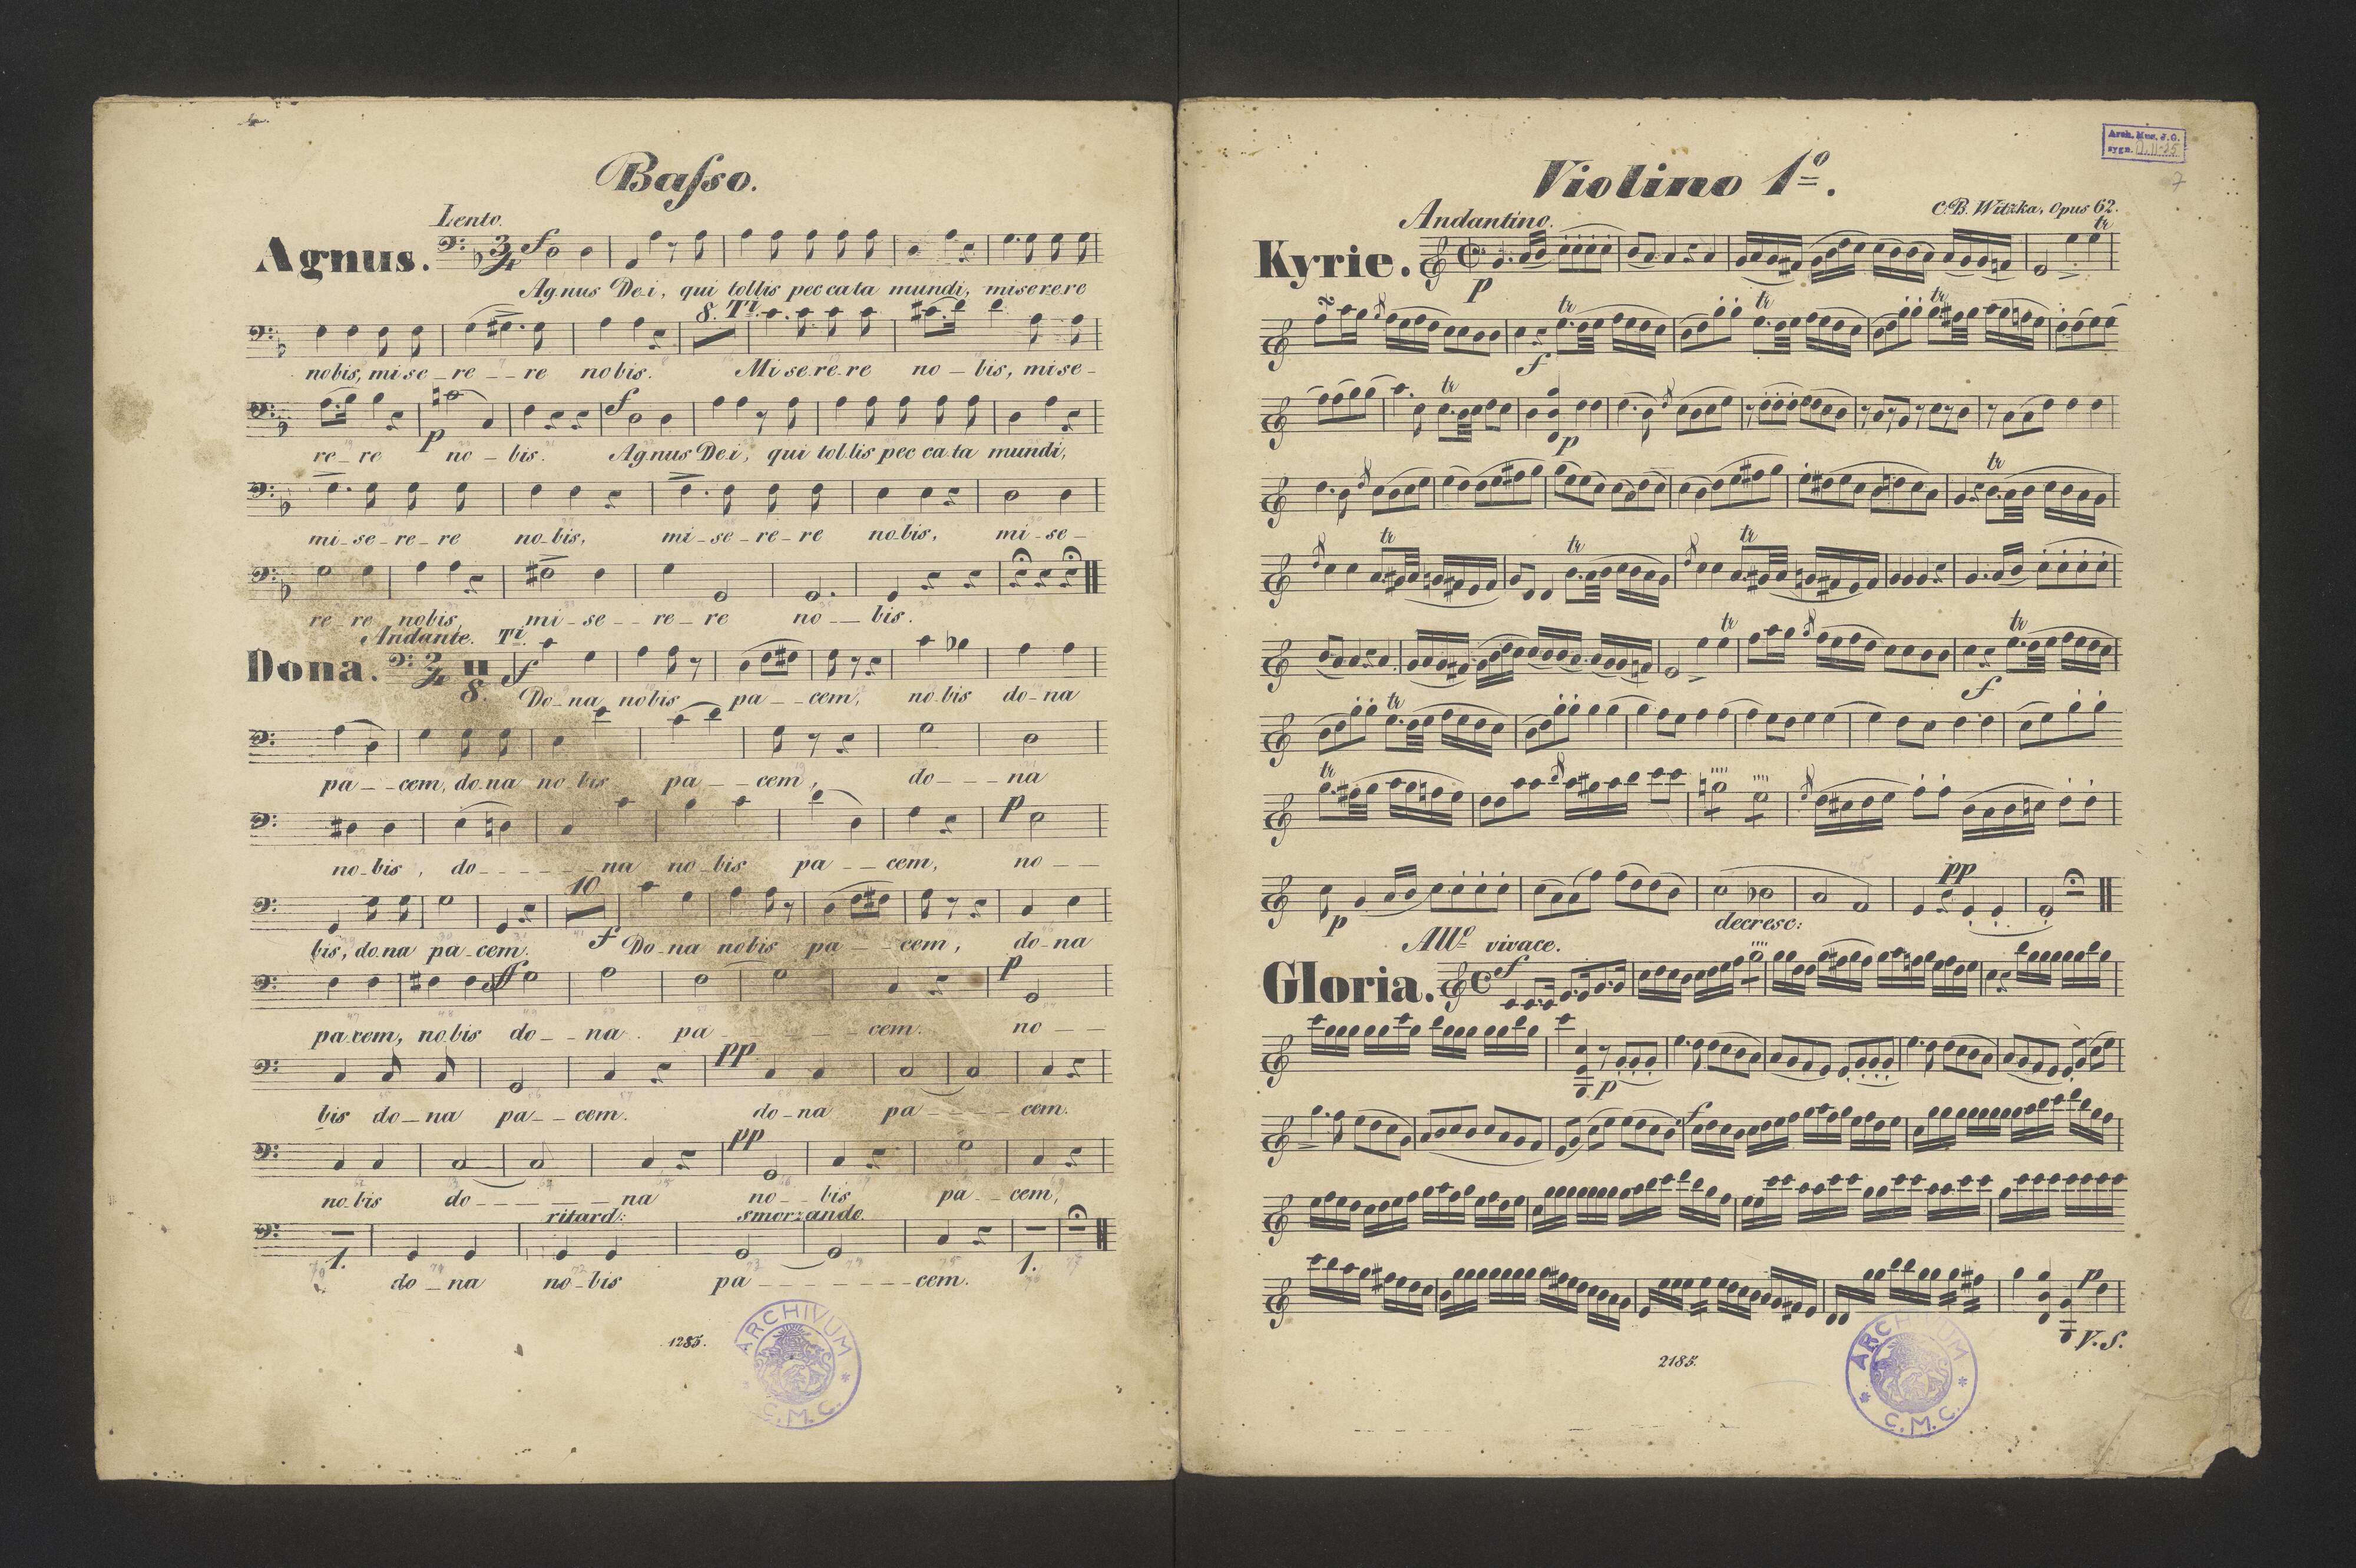 Baſso.
Lento.
Agnus. 3/4 f
Agnus Dei, qui tollis peccata mundi, miserere
8. Ti.
nobis, mise_re__re nobis. Miserere no_bis, mise_
p f
re_re no_bis. Agnus Dei, qui tollis peccata mundi,
mi_se_re_re no_bis, mi_se_re_re no_bis, mi_se_
re_re nobis, mi_se__re_re no__bis.
Andante. Ti.
Dona. 2/4 8. f
Do_na nobis pa__cem, no_bis do_na
pa__cem, dona no bis pa__cem, do___na
p
no_bis, do_____na no_bis pa__cem, no__
10 f
bis, dona pa_cem. Do_na nobis pa__cem, do_na
ff p
pacem, nobis do__na pa____cem. no__
pp
bis do_na pa__cem. do_na pa____cem.
pp
no_bis do_____na no__bis pa__cem,
ritard: smorzando.
1. 1.
do_na no_bis pa_______cem.
1285.
ARCHIVUM
C.M.C.
Arch. Mus. J.G.
sygn.
7
Violino 1o.
Andantino.
C.B. Witzka, Opus 62.
Kyrie. p tr
tr f tr tr
tr p
tr
tr tr tr
tr tr f
tr
tr
p decresc: pp
Allo vivace.
Gloria. C f
p
f
p
V.S.
2185.
ARCHIVUM
C.M.C.